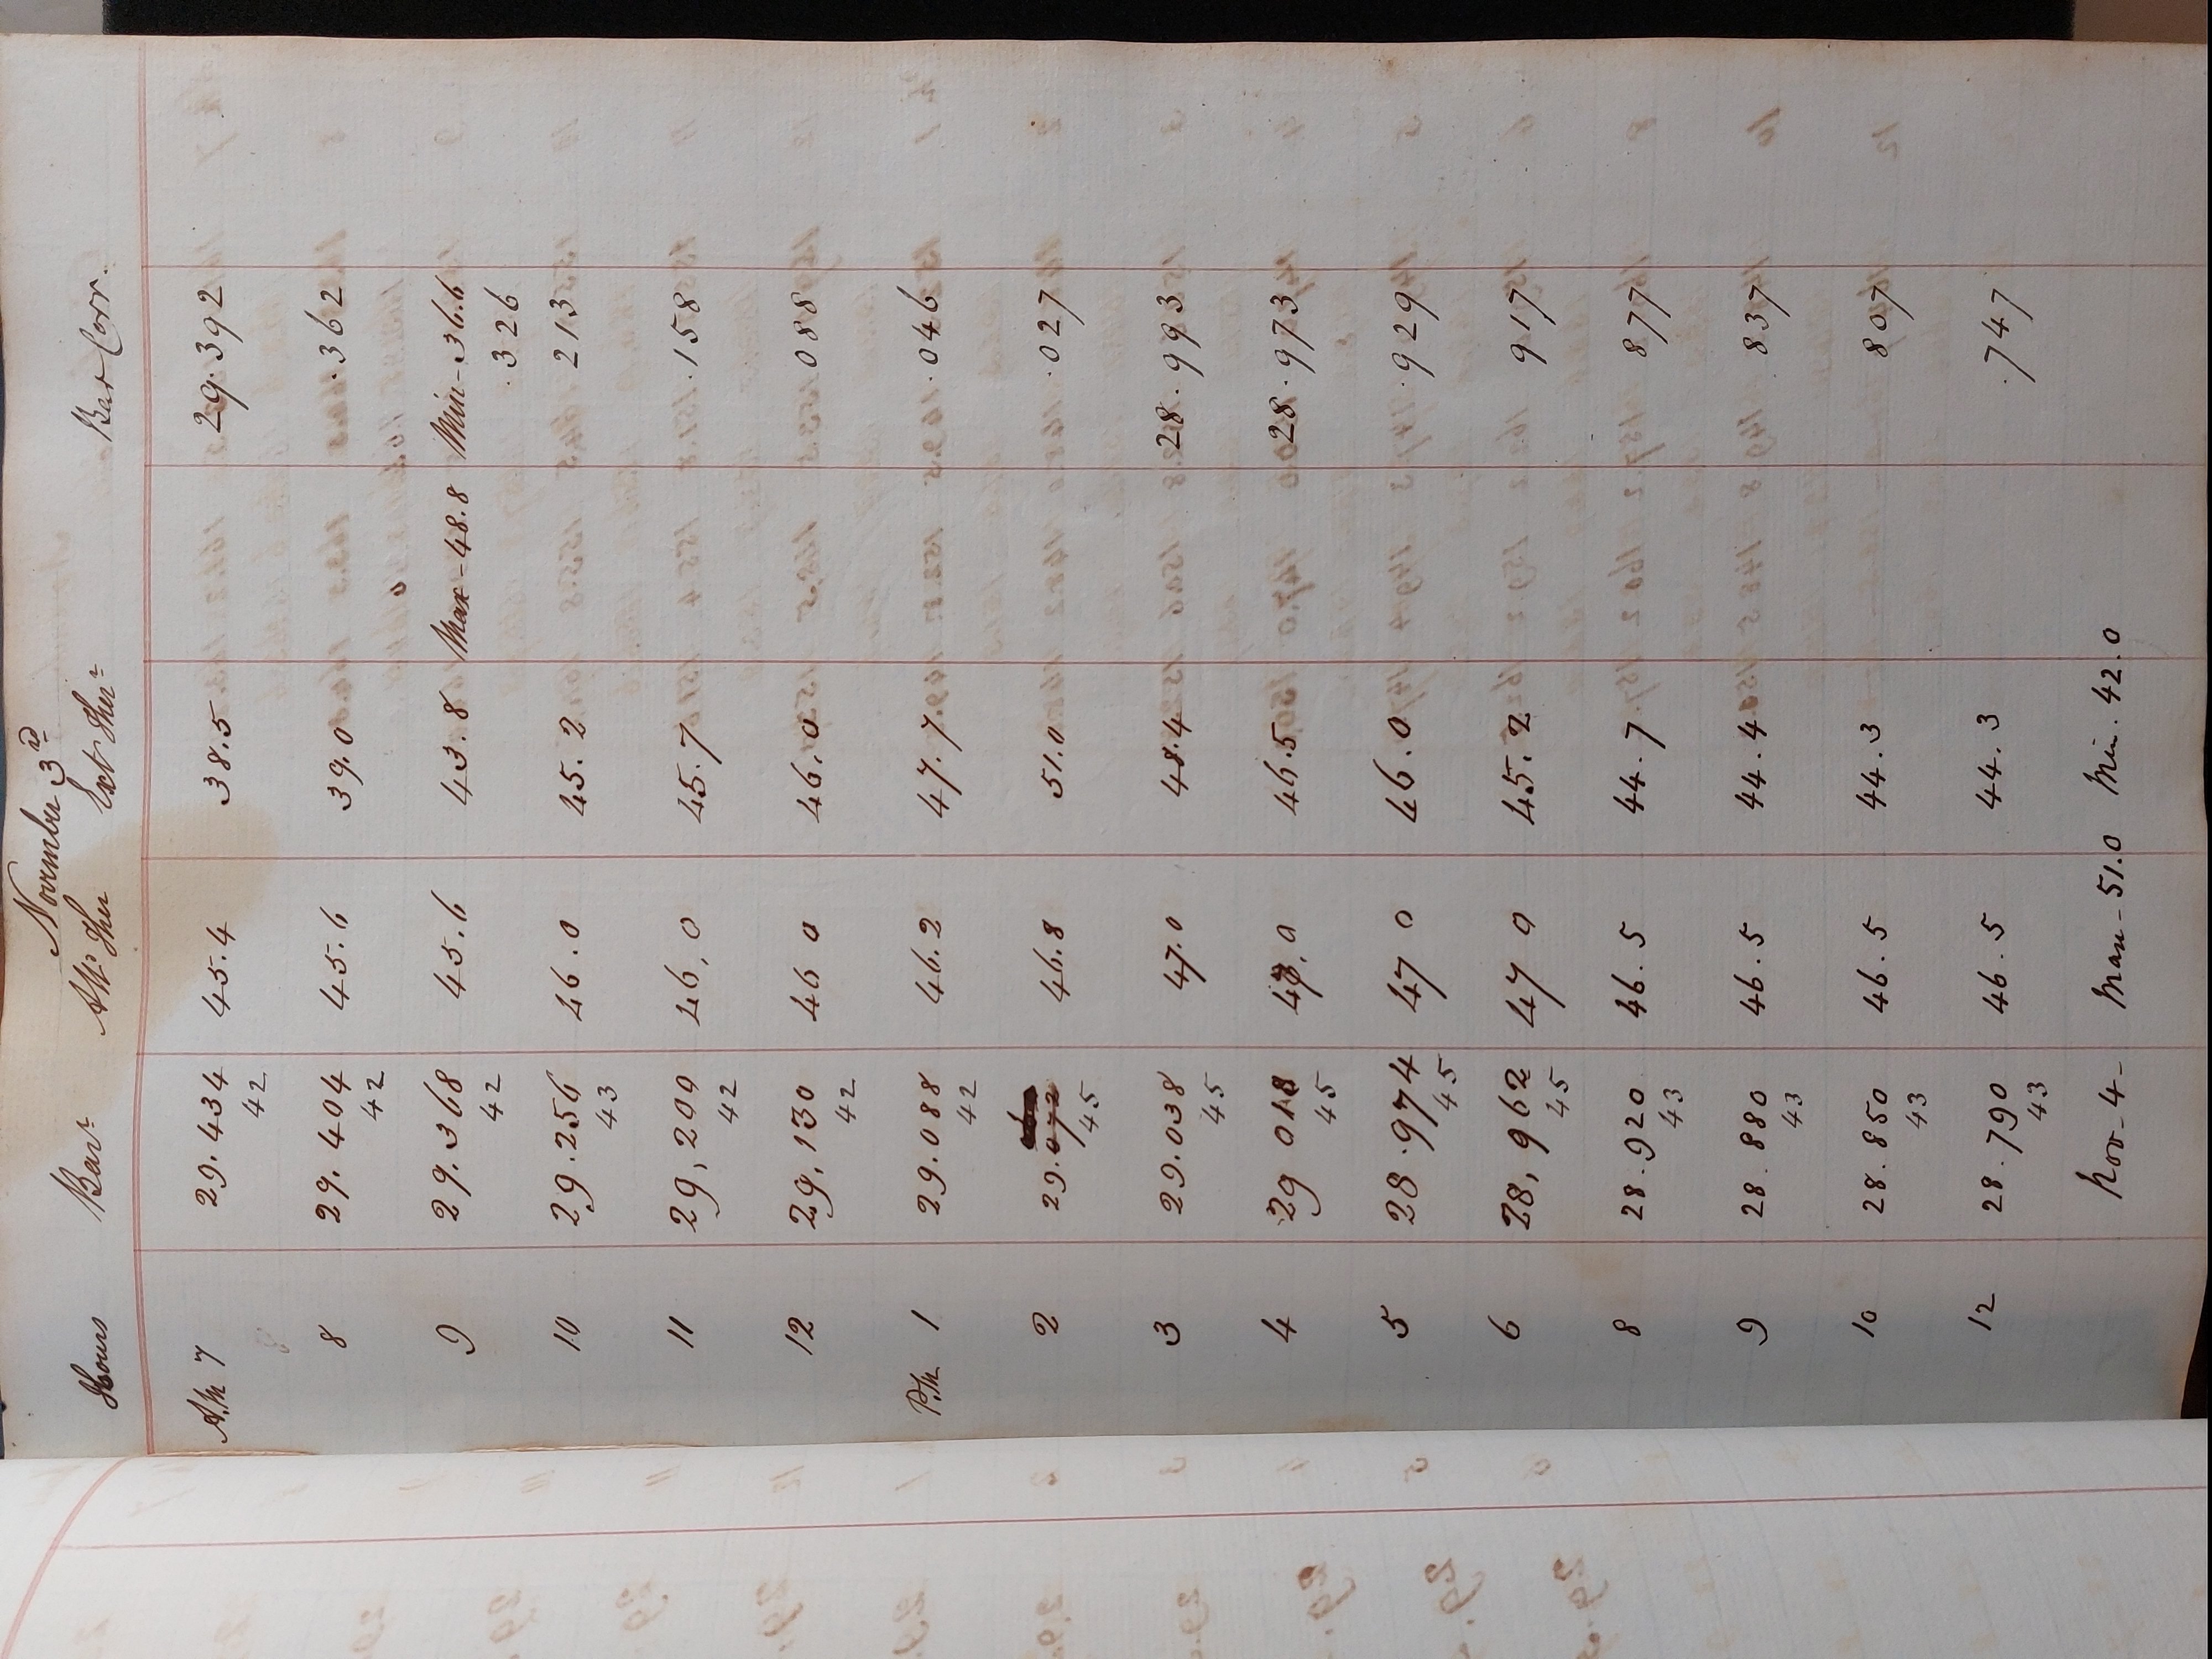 November 3rd
Hours Barr Attd Ther Ext Therr Bar Corr.
A.M 7 29.434 45.4 38.5 29.392
42
8
8 29.404 45.6 39.0 .362
42
9 29.368 45.6 43.8 Max - 48.8 Min - 36.6
42 .326
10 29.256 46.0 45.2 213
43
11 29,200 46,0 45.7 .158
42
12 29,130 46 0 46,0 088
42
P.M 1 29.088 46.2 47.7 .046
42
2 29.072 46.8 51.0 .027
45
3 29.038 47.0 48.4 28.993
45
4 29 018 47,0 46.5 28.973
45
5 28.974 47 0 46.0 .929
45
6 28,962 47 0 45.2 917
45
8 28.920 46.5 44.7 877
43
9 28.880 46.5 44.4 837
43
10 28.850 46.5 44.3 807
43
12 28.790 46.5 44.3 .747
43
Nov - 4 - Max - 51.0 Min. 42.0